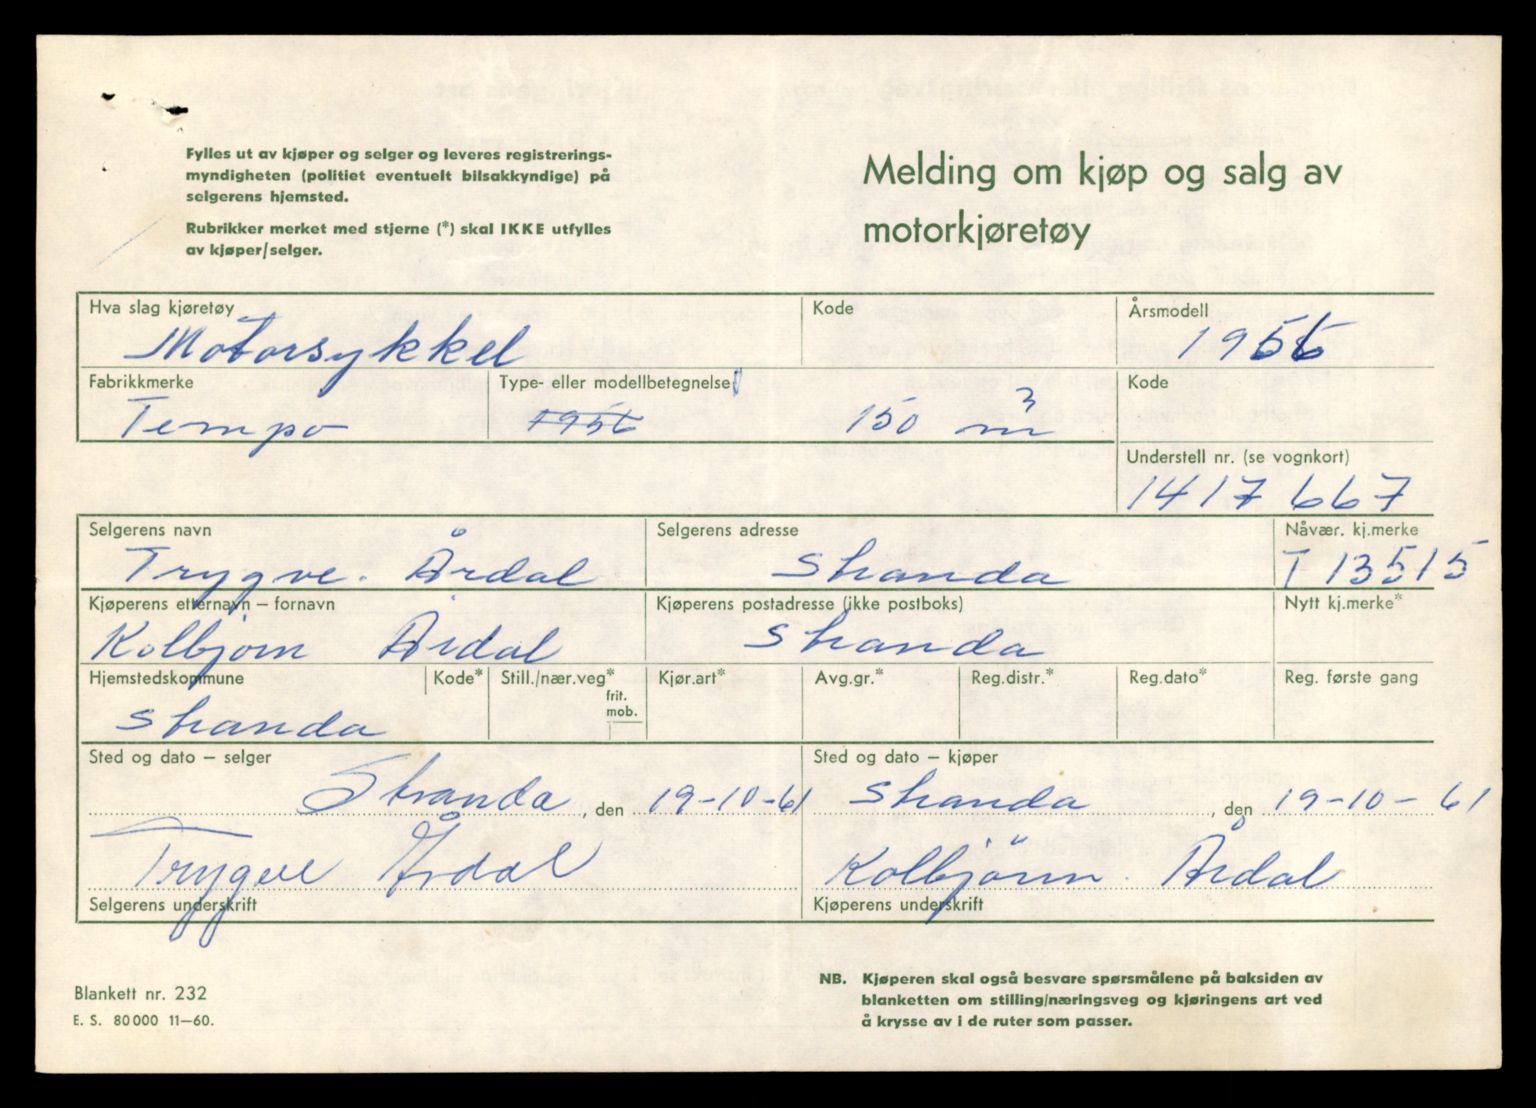 Fylles ut av kjøper og selger og leveres registrerings-
myndigheten (politiet eventuelt bilsakkyndige) på
selgerens hjemsted.
Rubrikker merket med stjerne (*) skal IKKE utfylles
av kjøper/selger.
Melding om kjøp og salg av
motorkjøretøy
Hva slag kjøretøy
Motorsykkel
Kode
Årsmodell
1956
Fabrikkmerke
Tempo
Type- eller modellbetegnelse
1956 150 m3
Kode
Understell nr. (se vognkort)
1417 667
Selgerens navn
Trygve. Årdal
Selgerens adresse
Stranda
Nåvær. kj.merke
T 13515
Kjøperens etternavn – fornavn
Kolbjørn Årdal
Kjøperens postadresse (ikke postboks)
Stranda
Nytt kj.merke*
Hjemstedskommune
Stranda
Kode*
Still./nær.veg*
frit.
mob.
Kjør.art*
Avg.gr.*
Reg.distr.*
Reg.dato*
Reg. første gang
Sted og dato – selger
Stranda, den 19-10-61
Trygve Årdal
Selgerens underskrift
Sted og dato – kjøper
Stranda, den 19-10-61
Kolbjörn Årdal
Kjøperens underskrift
Blankett nr. 232
E. S. 80 000 11–60.
NB. Kjøperen skal også besvare spørsmålene på baksiden av
blanketten om stilling/næringsveg og kjøringens art ved
å krysse av i de ruter som passer.